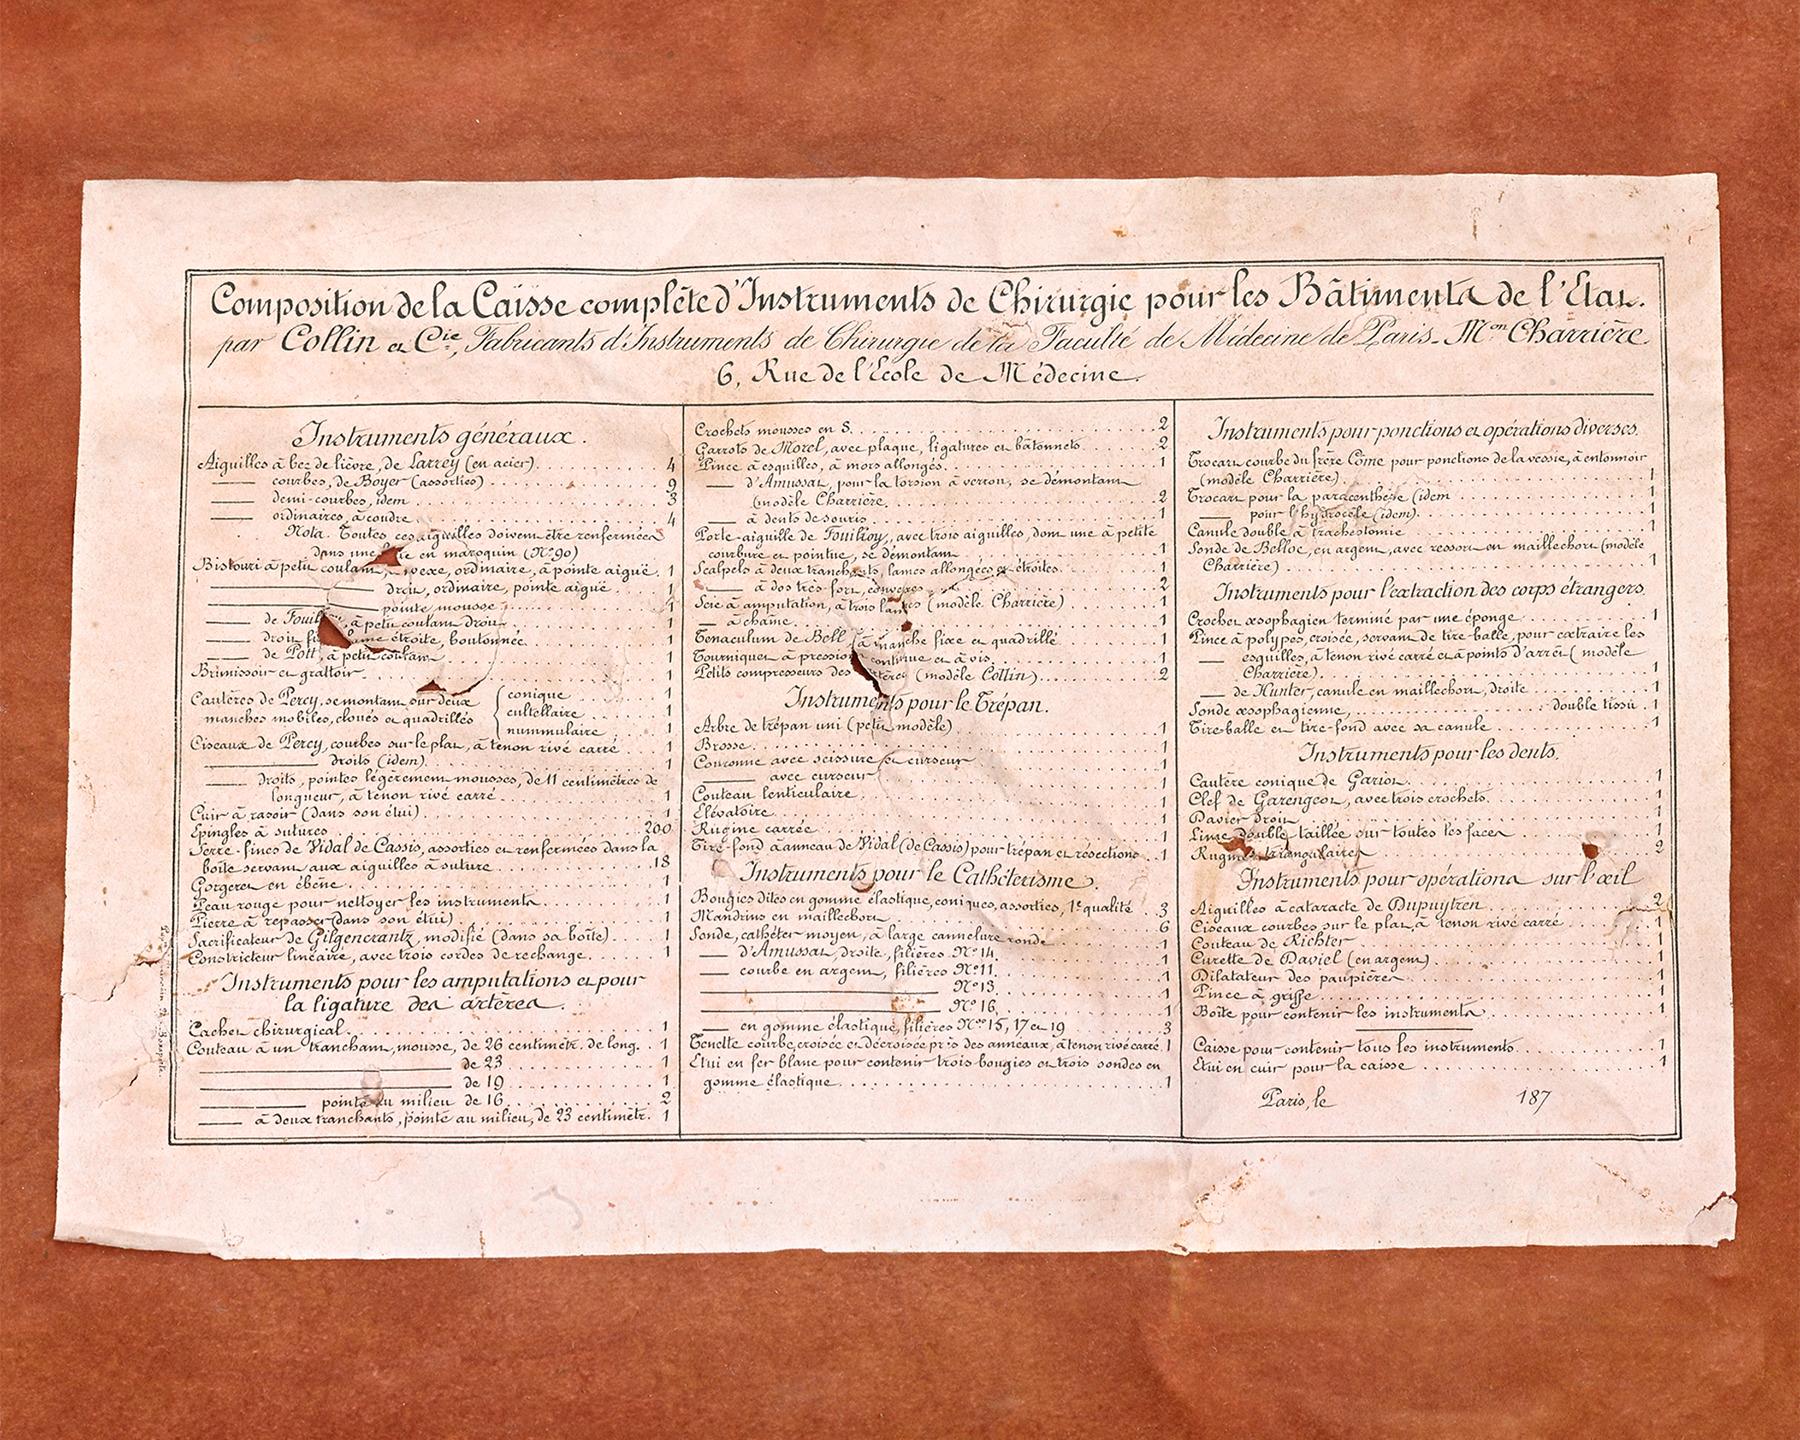 Composition de la Caisse complète d'Instruments de Chirurgie pour les Bâtiments de l'Etat.
par Collin et Cie, Fabricants d'Instruments de Chirurgie de la Faculté de Médecine de Paris - Mon Charrière
6, Rue de l'Ecole de Médecine.
Instruments généraux.
Aiguilles à bec de lièvre, de Larrey (en acier) 4
—— courbes, de Boyer (assorties) 9
—— demi-courbes, idem 3
—— ordinaires, à coudre 4
Nota. Toutes ces aiguilles doivent être renfermées
dans une en maroquin (No 90)
Bistouri à petit coulant, ordinaire, à pointe aiguë. 1
—— droit, ordinaire, pointe aiguë 1
—— pointe mousse 1
—— de à petit coulant droit 1
—— droit étroite, boutonnée 1
—— de Pott, à petit coulant 1
Brunissoir et grattoir 1
Cautères de Percy, se montant sur deux
manches mobiles, cloués et quadrillés
{ conique 1
cultellaire 1
nummulaire 1
Ciseaux de Percy, courbes sur le plat, à tenon rivé carré 1
—— droits (idem) 1
—— Droits, pointes légèrement mousses, de 11 centimètres de
longueur, à tenon rivé carré 1
Cuir à rasoir (dans son étui) 1
Epingles à sutures 200
Serre-fines de Vidal de Cassis, assorties et renfermées dans la
boîte servant aux aiguilles à suture 18
Gorgeret en ébène 1
Peau rouge pour nettoyer les instruments 1
Pierre à repasser (dans son étui) 1
Sacrificateur de Gilgencrantz, modifié (dans sa boîte) 1
Constricteur linéaire, avec trois cordes de rechange 1
Instruments pour les amputations et pour
la ligature des artères.
Cachet chirurgical 1
Couteau à un tranchant, mousse, de 26 centimètr. de long. 1
—— de 23 1
—— de 19 1
—— pointe au milieu de 16 2
—— à deux tranchants, pointe au milieu, de 23 centimètr. 1
Crochets mousses en S 2
Garrots de Morel, avec plaque, ligatures et bâtonnets 2
Pince à esquilles, à mors allongés 1
—— d'Amussat, pour la torsion à verrou, se démontant
(modèle Charrière) 2
—— à dents de souris 1
Porte-aiguille de Fouilloy, avec trois aiguilles, dont une à petite
courbure et pointue, se démontant 1
Scalpels à deux tranchants, lames allongées et étroites 1
—— à dos très fort, convexes 2
Scie à amputation, à trois lames (modèle Charrière) 1
—— à chaîne 1
Tenaculum de Bell (à manche fixe et quadrillé 1
Tourniquet à pression continue et à vis 1
Petits compresseurs des artères (modèle Collin) 2
Instruments pour le Trépan.
Arbre de trépan uni (petit modèle) 1
Brosse 1
Couronne avec scissure et curseur 1
—— avec curseur 1
Couteau lenticulaire 1
Elévatoire 1
Rugine carrée 1
Tire-fond à anneau de Vidal (de Cassis) pour trépan et résections 1
Instruments pour le Cathétérisme.
Bougies dites en gomme élastique, coniques, assorties, 1e qualité 3
Mandrins en maillechort 6
Sonde, cathéter moyen, à large cannelure ronde 1
—— d'Amussat, droite, filières No 14. 1
—— courbe en argent, filières No 11. 1
—— No 13. 1
—— No 16. 1
—— en gomme élastique, filières Nos 15, 17 et 19 3
Tenette courbe, croisée et décroisée près des anneaux, à tenon rivé carré 1
Etui en fer blanc pour contenir trois bougies et trois sondes en
gomme élastique 1
Instruments pour ponctions et opérations diverses.
Trocart courbe du frère Côme pour ponctions de la vessie, à entonnoir
(modèle Charrière) 1
Trocart pour la paracenthèse (idem 1
—— pour l'hydrocèle (idem) 1
Canule double à trachéotomie 1
Sonde de Belloc, en argent, avec ressort en maillechort (modèle
Charrière) 1
Instruments pour l'extraction des corps étrangers.
Crochet œsophagien terminé par une éponge 1
Pince à polypes, croisée, servant de tire-balle, pour extraire les
—— esquilles, à tenon rivé carré et à points d'arrêt (modèle
Charrière) 1
—— de Hunter, canule en maillechort, droite 1
Sonde œsophagienne, double tissu 1
Tire-balle et tire-fond avec sa canule 1
Instruments pour les dents.
Cautère conique de Gariot 1
Clef de Garengeot, avec trois crochets 1
Davier droit 1
Lime double taillée sur toutes les faces 1
Rugines triangulaires 2
Instruments pour opérations sur l'œil
Aiguilles à cataracte de Dupuytren 2
Ciseaux courbes sur le plat, à tenon rivé carré 1
Couteau de Richter 1
Curette de Daviel (en argent) 1
Dilatateur des paupières 1
Pince à griffe 1
Boîte pour contenir les instruments 1
Caisse pour contenir tous les instruments 1
Etui en cuir pour la caisse 1
Paris, le 187